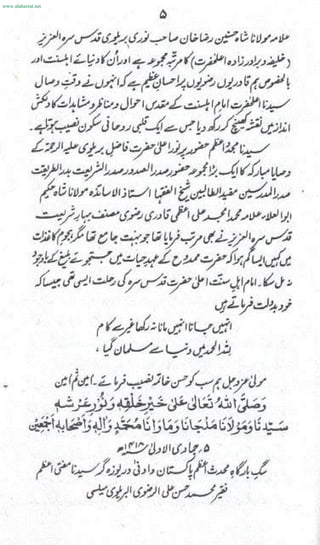 www.alahazrat.net
۵
علامہ مولانا شاہ حسنین رضا خان صاحب نوری بریلوی قدس سرہ العزیز
(خلیفہ و برادر زادہ اعلحضرت) کا مرتبہ مجموعہ ہے اور اُن کا دنیائے اہلسنت اور
بالخصوص ہم قادریوں رضویوں پر احسانِ عظیم ہے کہ انہوں نے وقتِ وصال
سیدنا اعلحضرت امام اہلسنت کے مقدس احوال و مناظر و مشاہدات کا دلکش
انداز میں نقشہ کھینچ کر رکھ دیا جس سے ایک قلبی روحانی سکون نصیب ہوتا ہے۔
سیدنا مجدّدِ اعظم حضور پر نور اعلیٰ حضرت فاضلِ بریلوی علیہ الرحمۃ کے
وصایا مبارکہ کا ایک بڑا مجموعہ حضور صدر الصدور صدر الشریعت بدر الطریقت
صدر المدرسین مفید الطالبین شیخ الفقہا استاذ الاساتذہ مولانا شاہ حکیم
ابو العلا علامہ محمد امجد علی اعظمی قادری رضوی مصنف بہارِ شریعت
قدس سرہ العزیز نے بھی مرتب فرمایا تھا جو بہت جامع تھا مگر ہجومِ کاغذات
میں کہیں ایسا گم ہوا کہ حضرت ممدوح کے عہدِ حیات میں جستجوئے بلیغ کے باوجود
نہ مل سکا۔ امام اہلِ سنت اعلیٰ حضرت قدس سرہ کی رحلت ایسی تھی جیسا کہ
خود بدولت فرماتے ہیں
انہیں جانا انہیں مانا نہ رکھا غیر سے کام
للہ الحمد میں دنیا سے مسلمان گیا
مولیٰ عزوجل ہم سب کو حسنِ خاتمہ نصیب فرمائے۔ آمین ثم آمین
وَصَلَّی اللهُ تَعَالٰی عَلٰی خَیْرِ خَلْقِهٖ وَنُوْرِ عَرْشِهٖ
سَیِّدِنَا وَمَوْلَانَا مَلْجَانَا وَمَاْوَانَا مُحَمَّدٍ وَّاٰلِهٖ وَاَصْحَابِهٖ اَجْمَعِیْنَ
۵ جمادی الاولیٰ ۱۴۱۸ھ
سگِ بارگاہِ محدثِ اعظم پاکستان و ادنیٰ دریوزہ گر سیدنا مفتی اعظم
فقیر محمد حسن علی الرضوی البریلوی میلسی